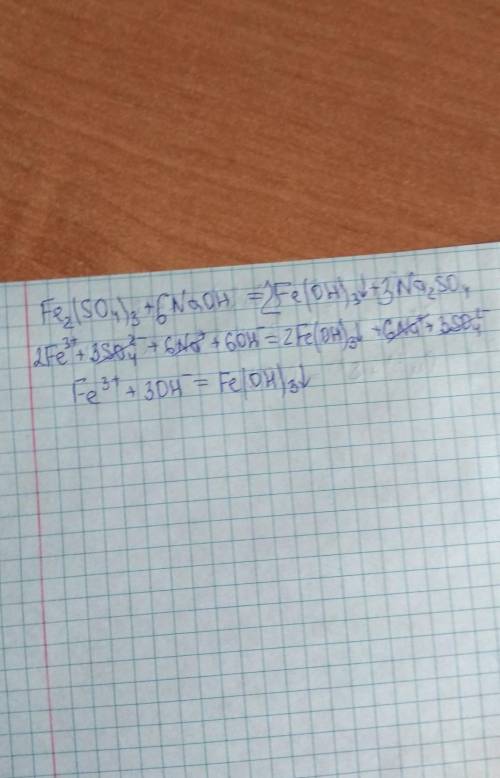 Fe₂(SO₄)₃ + 6NaOH = 2Fe(OH)₃↓ + 3Na₂SO₄
2Fe³⁺ + 3SO₄²⁻ + 6Na⁺ + 6OH⁻ = 2Fe(OH)₃↓ + 6Na⁺ + 3SO₄²⁻
Fe³⁺ + 3OH⁻ = Fe(OH)₃↓